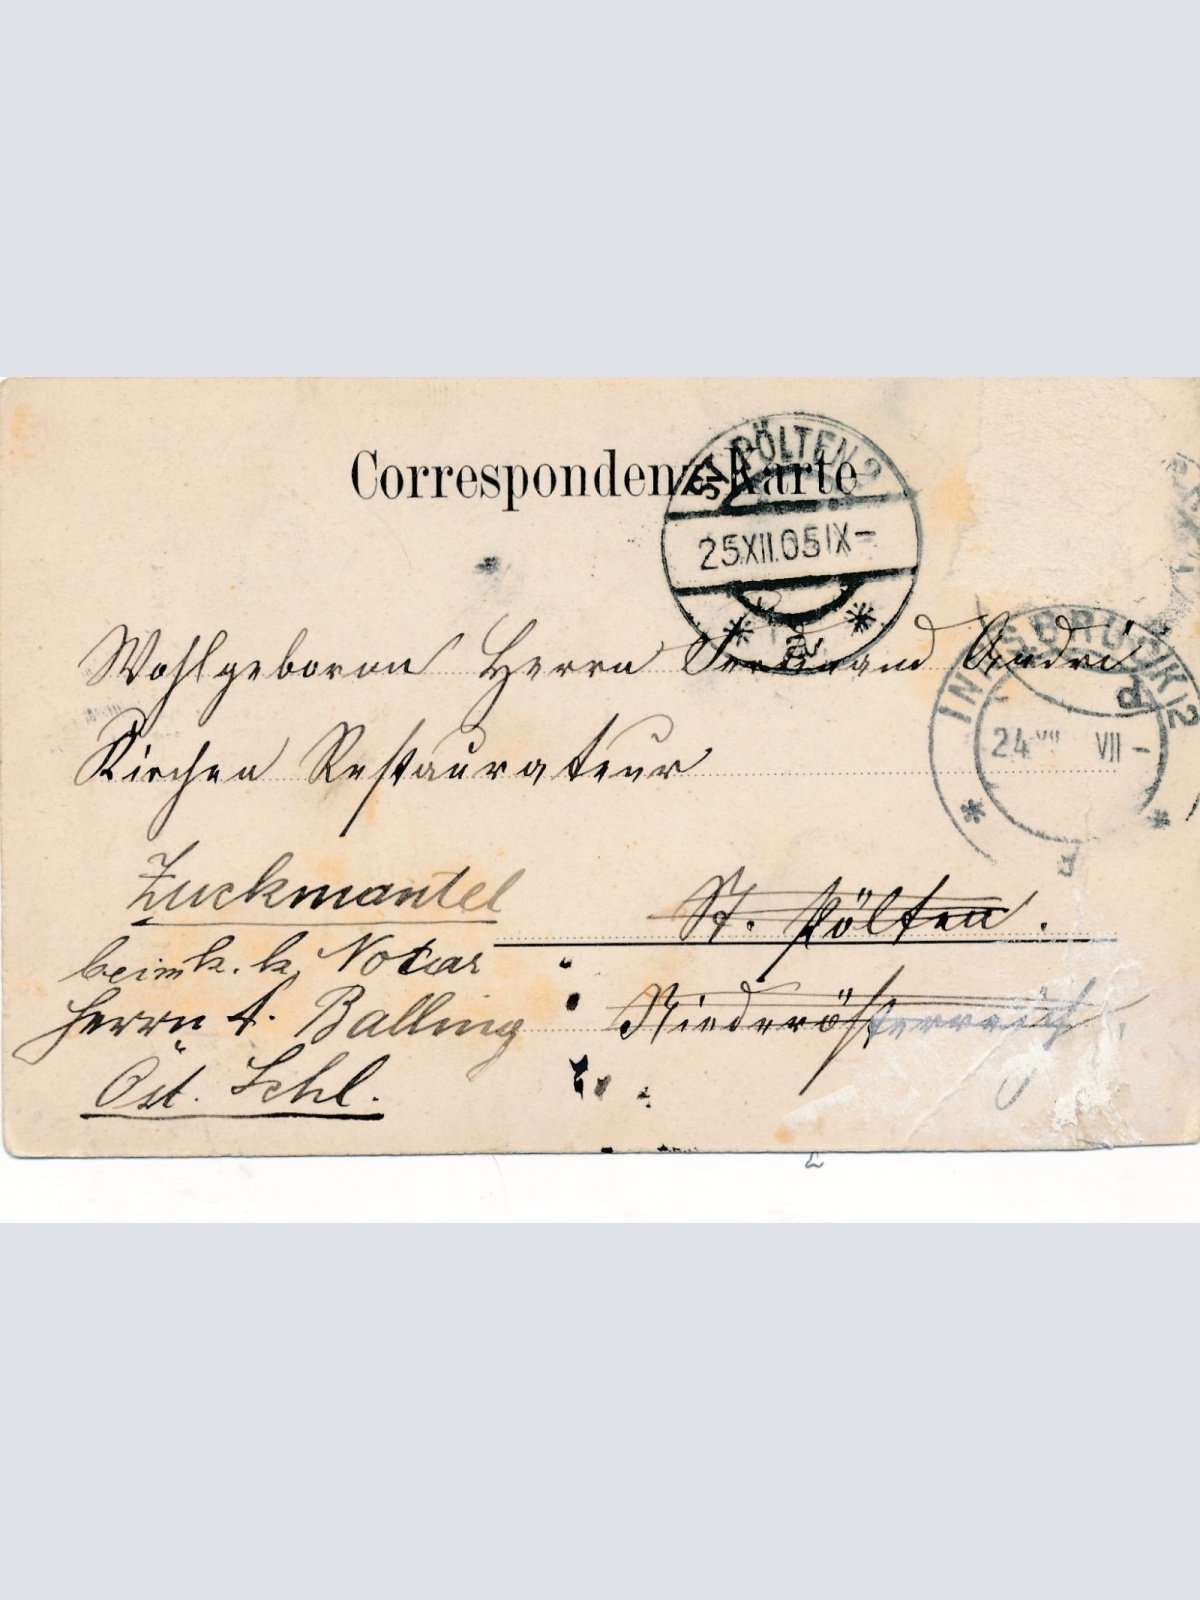 Correspondenz-Karte
ST. PÖLTEN 2
25.XII.05 IX-
a
Wohlgeboren Herrn Ferdinand Andri
INNSBRUCK 2
24 XII VII-
Kirchen Restaurateur
Zuckmantel
St. Pölten.
beim k. k. Notar
Herrn A. Balling
Niederösterreich
Öst. Schl.